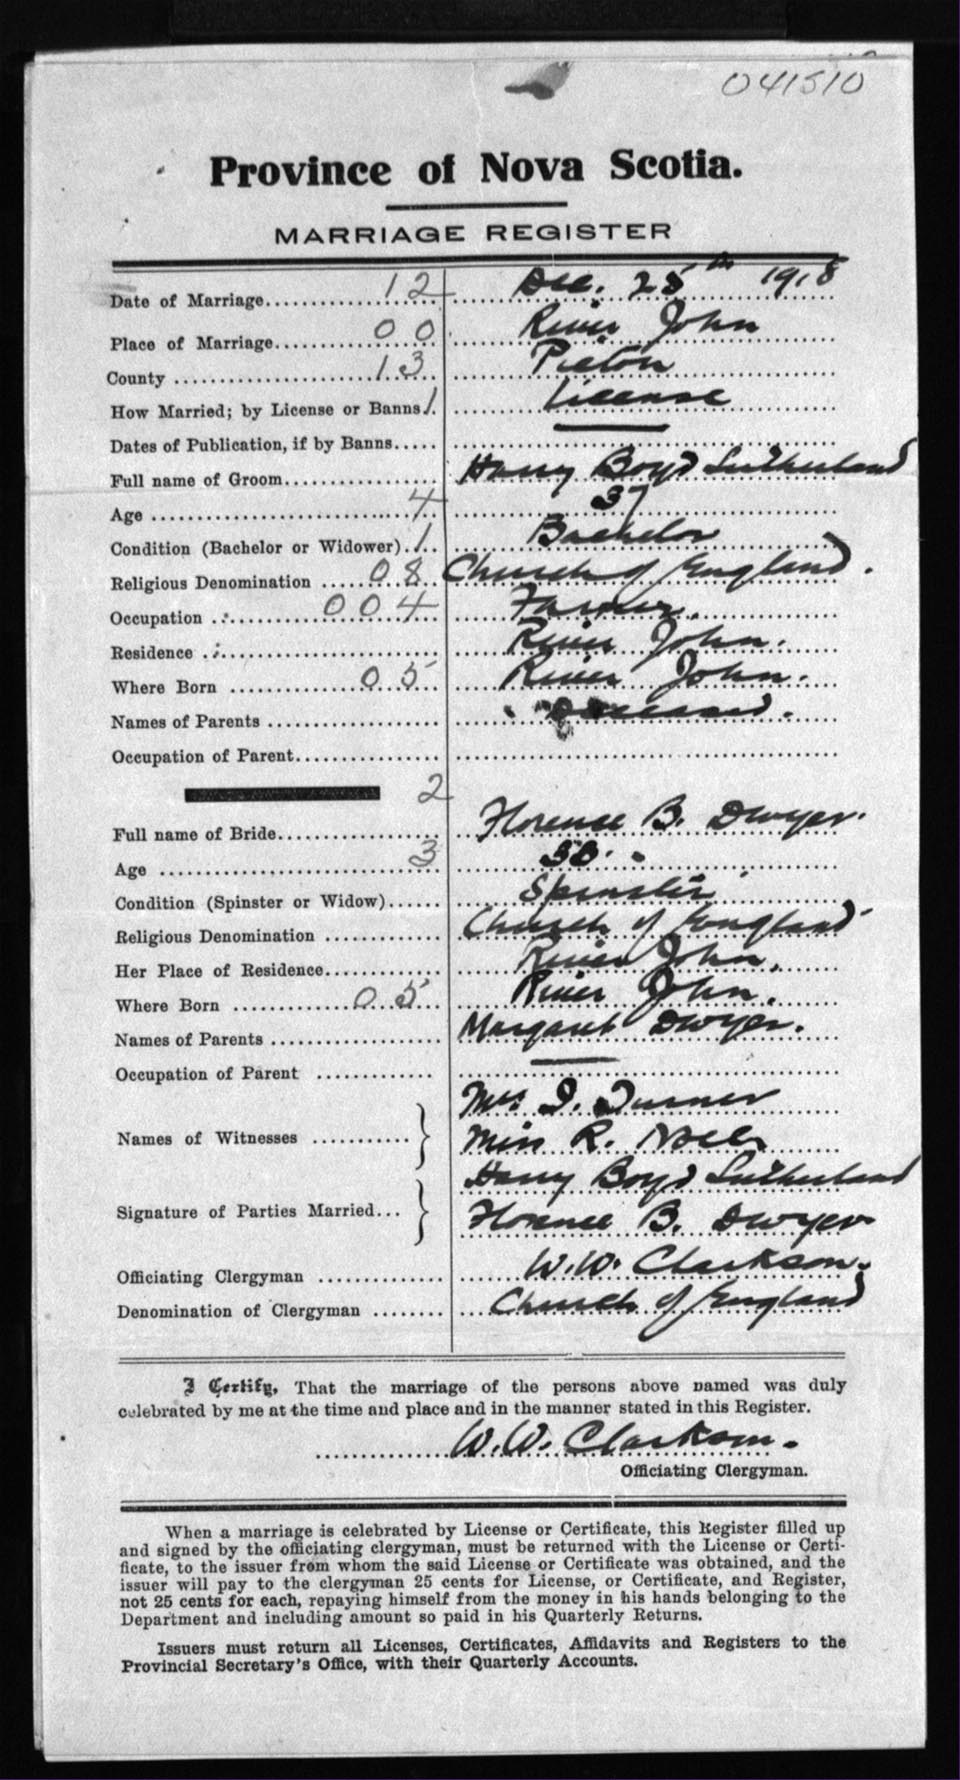 041510
Province of Nova Scotia.
MARRIAGE REGISTER
Date of Marriage 12 Dec. 25th 1918
Place of Marriage 00 River John
County 13 Pictou
How Married; by License or Banns 1 License
Dates of Publication, if by Banns
Full name of Groom Harry Boyd Sutherland
Age 4 37
Condition (Bachelor or Widower) 1 Bachelor
Religious Denomination 08 Church of England.
Occupation 004 Farmer.
Residence River John.
Where Born 05 River John.
Names of Parents Deceased.
Occupation of Parent
2
Full name of Bride Florence B. Dwyer.
Age 3 30.
Condition (Spinster or Widow) Spinster
Religious Denomination Church of England
Her Place of Residence River John.
Where Born 05 River John.
Names of Parents Margaret Dwyer.
Occupation of Parent
Names of Witnesses Mrs. I. Turner
Miss R.
Signature of Parties Married... Harry Boyd Sutherland
Florence B. Dwyer
Officiating Clergyman W. W. Clarkson.
Denomination of Clergyman Church of England
I Certify, That the marriage of the persons above named was duly
celebrated by me at the time and place and in the manner stated in this Register.
W. W. Clarkson.
Officiating Clergyman.
When a marriage is celebrated by License or Certificate, this Register filled up
and signed by the officiating clergyman, must be returned with the License or Certi-
ficate, to the issuer from whom the said License or Certificate was obtained, and the
issuer will pay to the clergyman 25 cents for License, or Certificate, and Register,
not 25 cents for each, repaying himself from the money in his hands belonging to the
Department and including amount so paid in his Quarterly Returns.
Issuers must return all Licenses, Certificates, Affidavits and Registers to the
Provincial Secretary's Office, with their Quarterly Accounts.